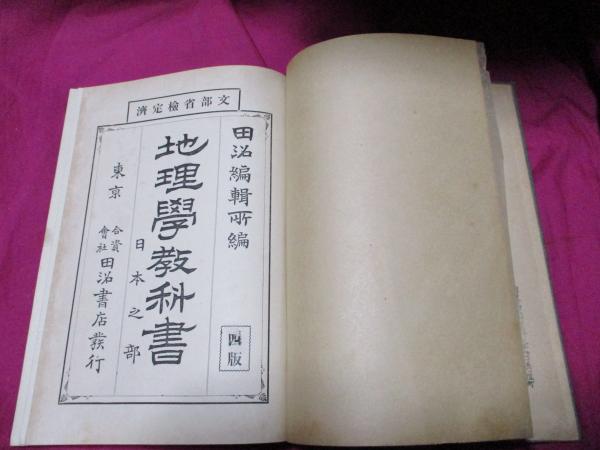 文部省檢定濟
田沼編輯所編
地理學教科書
日本之部
四版
東京
合資會社
田沼書店發行